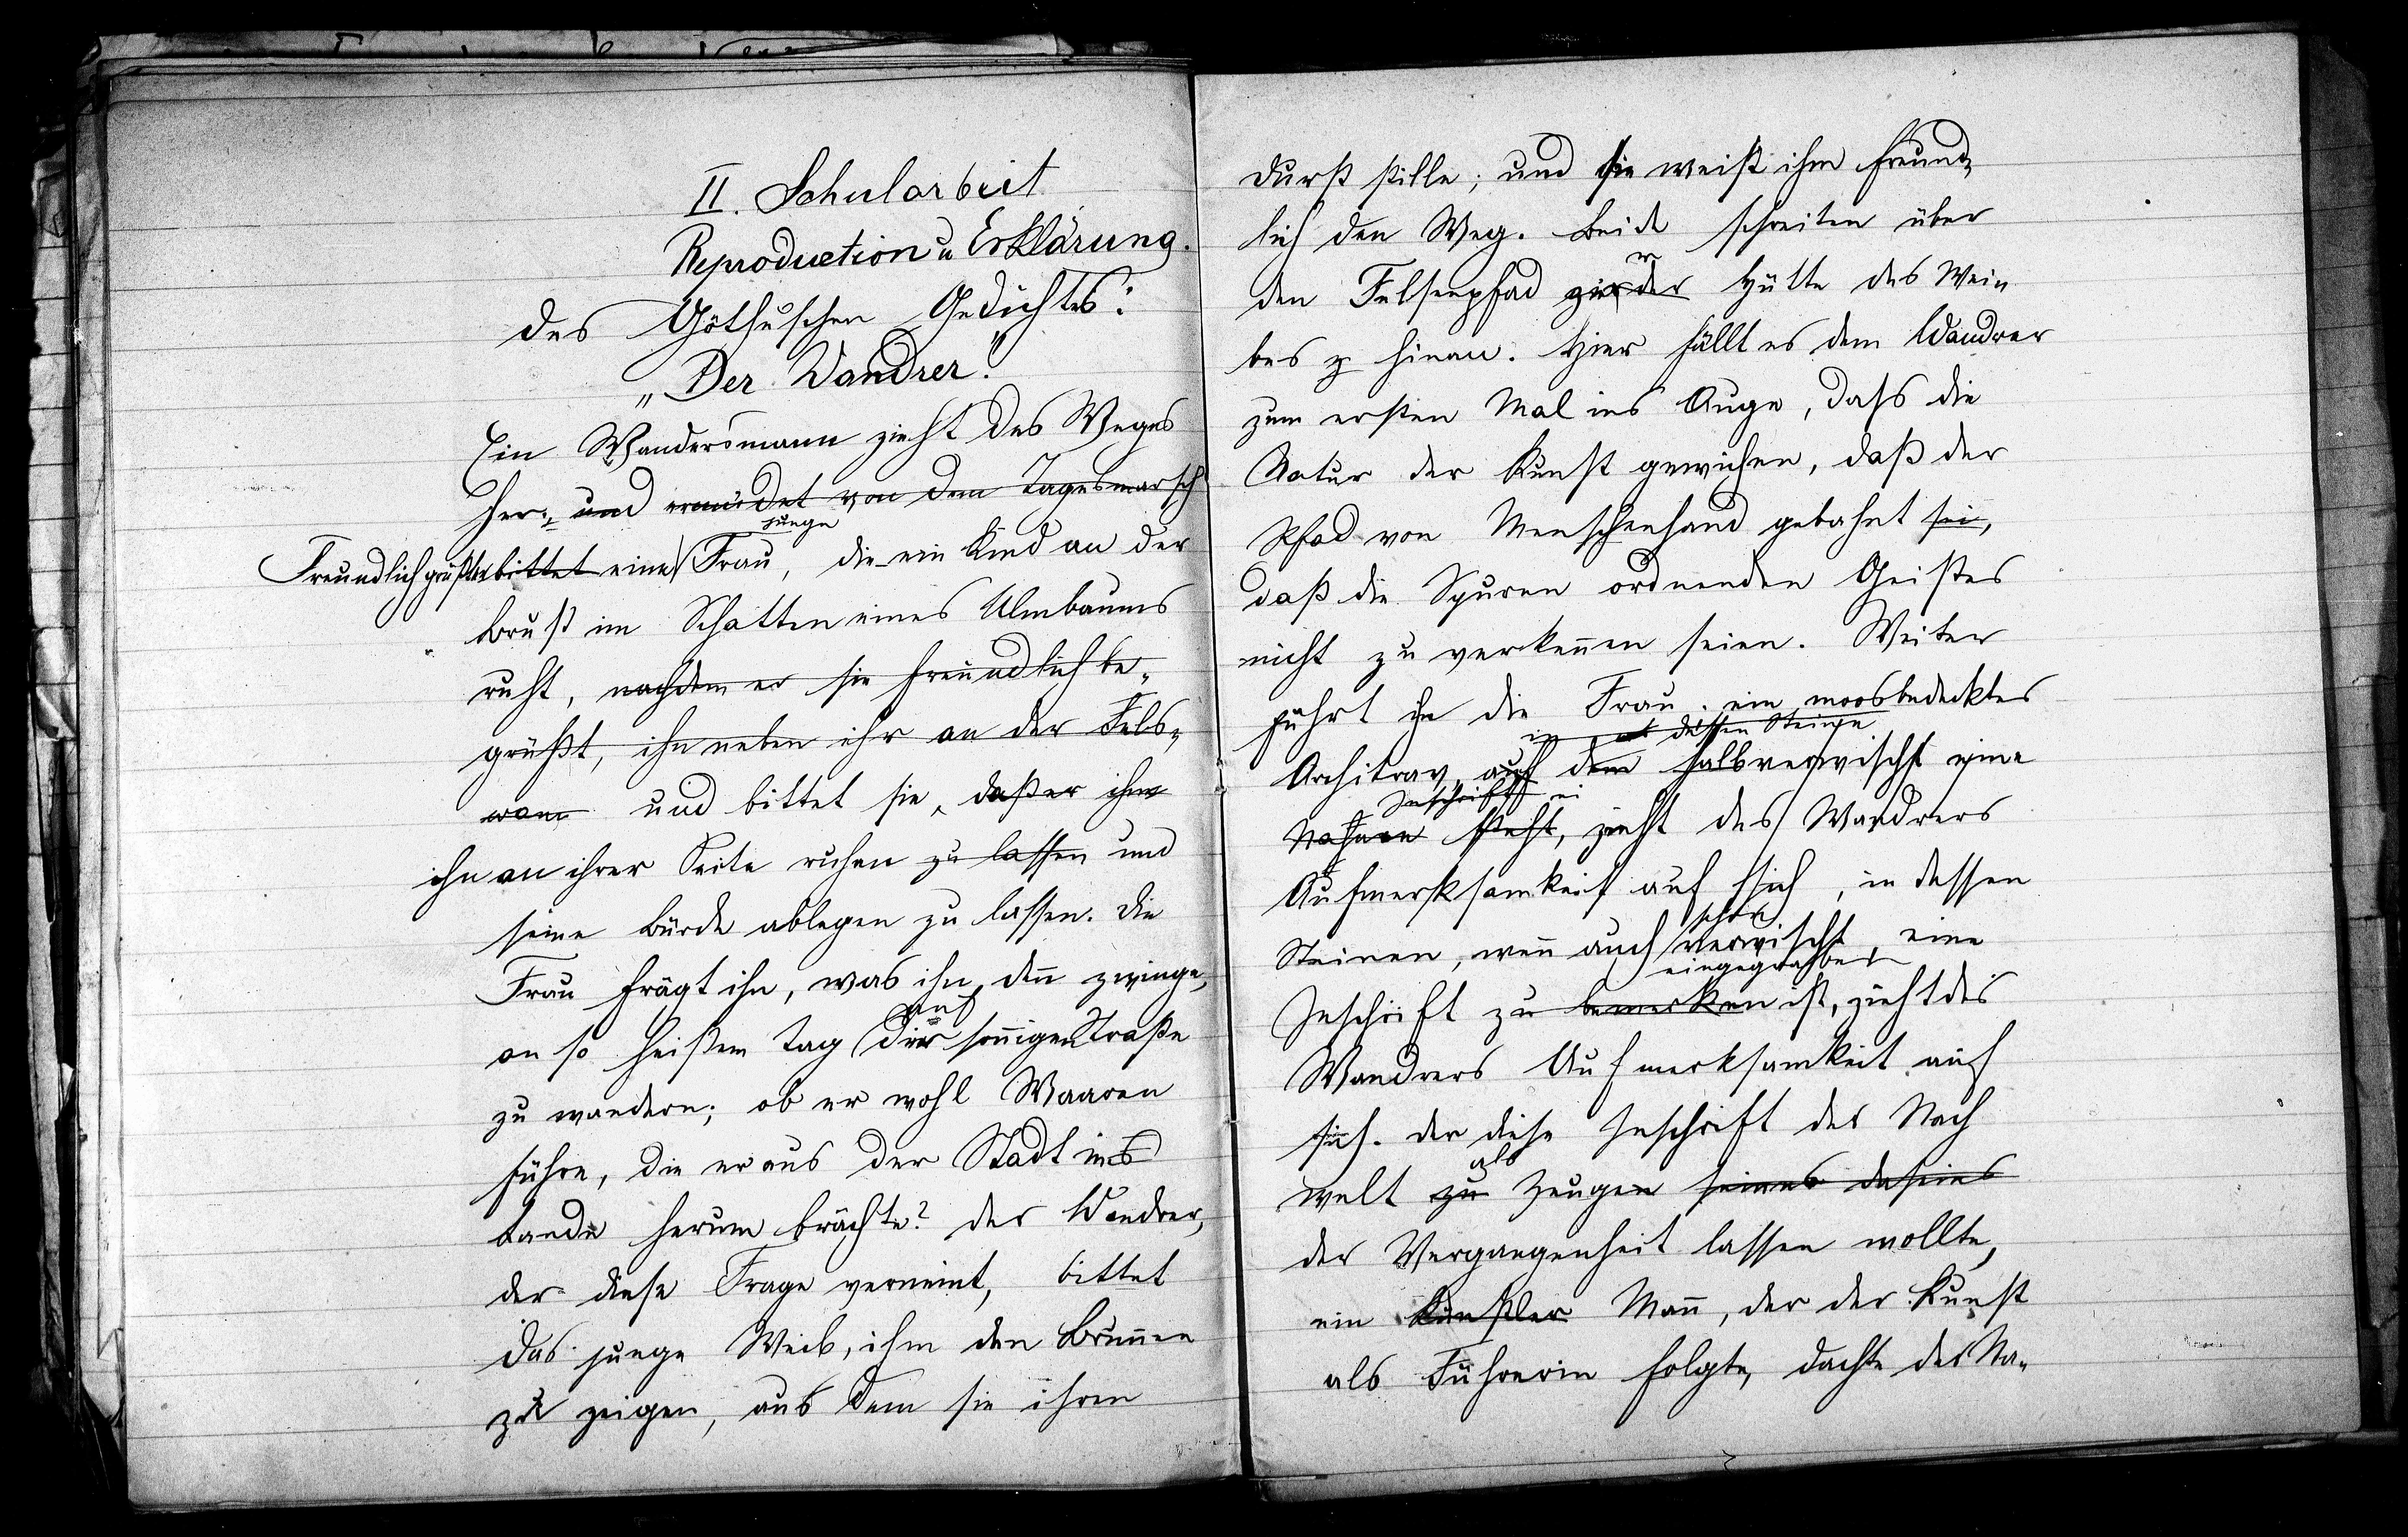 II. Schularbeit
Reproduction u Erklärung.
des Götheschen Gedichtes:
„Der Wandrer."
Ein Wandersmann zieht des Weges
her. und ermüdet von dem Tagesmarsch
junge
Freundlich grüßt er bittet eine Frau, die ein Kind an der
Brust im Schatten eines Ulmbaums
ruht, nachdem er sie freundlich be„
grüßt, ihn neben ihr an der Fels„
wand und bittet sie, daß er ihm
ihn an ihrer Seite ruhen zu lassen und
seine Bürde ablegen zu lassen. Die
Frau frägt ihn, was ihn den zwinge,
auf
an so heißem Tag der sonigen Straße
zu wandern; ob er wohl Waaren
führe, die er aus der Stadt ins
Lande herum brächte? Der Wandrer,
der diese Frage verneint, bittet
das junge Weib, ihm den Brunnen
zu zeigen, aus dem sie ihren
Durst stille; und sie weist ihm freund„
lich den Weg. Beide schreiten über
den Felsenpfad zur der Hütte des Wei„
bes z hinan. Hier fällt es dem Wandrer
zum ersten Mal ins Auge, dass die
Natur der Kunst gewichen, daß der
Pfad von Menschenhand gebahnt sei,
daß die Spuren ordnenden Geistes
nicht zu verkennen seien. Weiter
führt ihn die Frau. ein moosbedecktes
in dessen Steinen
Architrav, auf dem halbverwischt eine
Inschrift
Nahmen steht, zieht des Wandrers
Aufmerksamkeit auf sich, in dessen
schon
Steinen, wenn auch verwischt, eine
eingegraben
Inschrift zu bemerken ist, zieht des
Wandrers Aufmerksamkeit auf
sich. Der diese Inschrift der Nach
als
welt zu Zeugen seines daseins
der Vergangenheit lassen wollte,
ein Künstler Mann, der der Kunst
als Führerin folgte, dachte der Na„